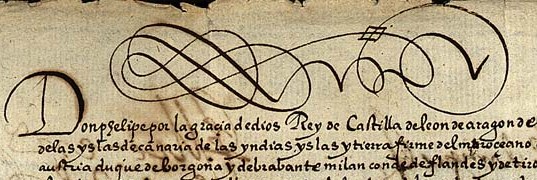 Don phelipe por la graçia de dios Rey de Castilla de leon de aragon de
de las yslas de canaria de las yndias yslas y tierra firme del mar oceano
austria duque de borgoña y de brabante milan conde de flandes y de tirol